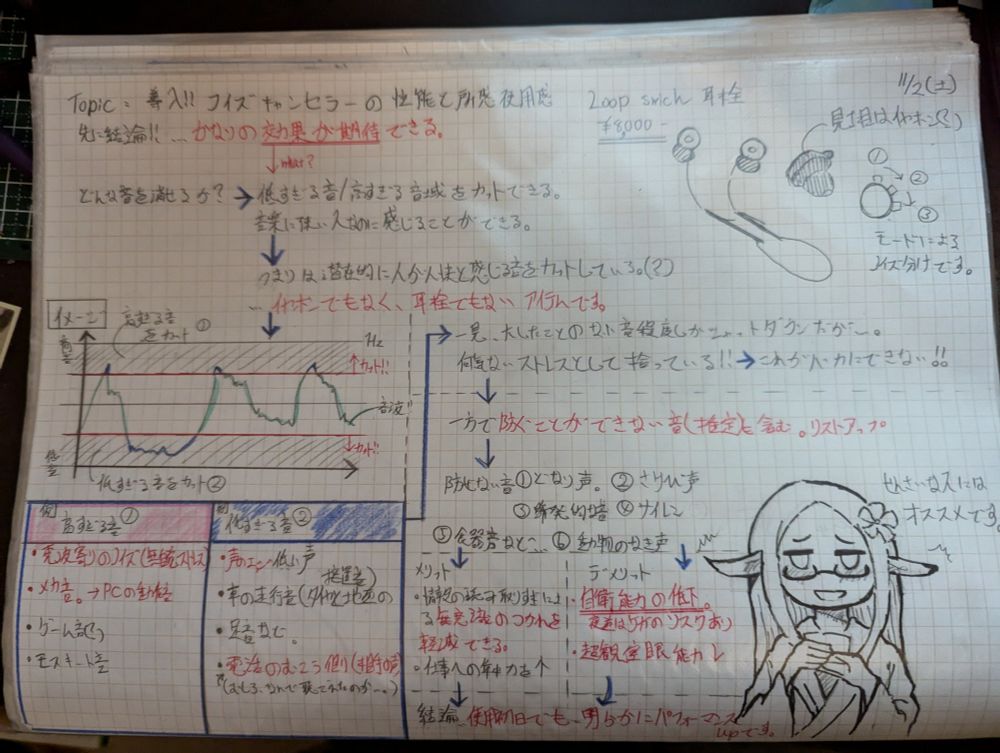 11/2(土)
Topic: 導入!! ノイズキャンセラーの性能と所感使用感
Loop swich 耳栓
¥8,000-
先に結論!! …かなりの効果が期待できる。
見た目はイヤホン(?)
what?
どんな音を消せるか? → 低すぎる音/高すぎる音域をカットできる。
①
②
③
モードによる
ノイズ分けです。
つまりは潜在的に人が人体と感じる音をカットしている。(?)
…イヤホンでもなく、耳栓でもないアイテムです。
イメージ
高すぎる音をカット①
高音
Hz
カット!!
音波!!
カット!!
低音
低すぎる音をカット②
一見、大したことのない音程度しか
何気ないストレスとして拾っている!! → これがバカにできない!!
一方で防ぐことができない音(推定)も含む。リストアップ
防せない音 ①となり声。 ②さけび声
③瞬発的な音 ④サイレン
⑤食器音など… ⑥動物のなき声
せんさいな人には
オススメです
例
高すぎる音①
・電波寄りのノイズ(無線ストレス)
・メカ音。→PCの動作音
・ゲーム音(?)
・モスキート音
例
低すぎる音②
・声のエコー 低い声
・車の走行音(タイヤと地面の
接置音)
・足音など。
・電話のむこう側(相手の声)
メリット
・情報の読み取りすぎによる
疲れを
軽減できる。
・仕事への集中力を
デメリット
・自衛能力の低下。
・超観察眼能力↓
結論、使用初日でも、明らかにパフォーマンス
upです。